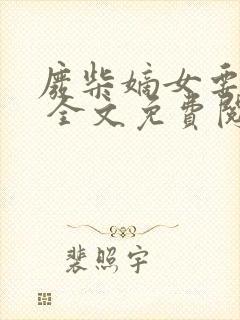 廢柴嫡女要
全文免費閱
裴照宇